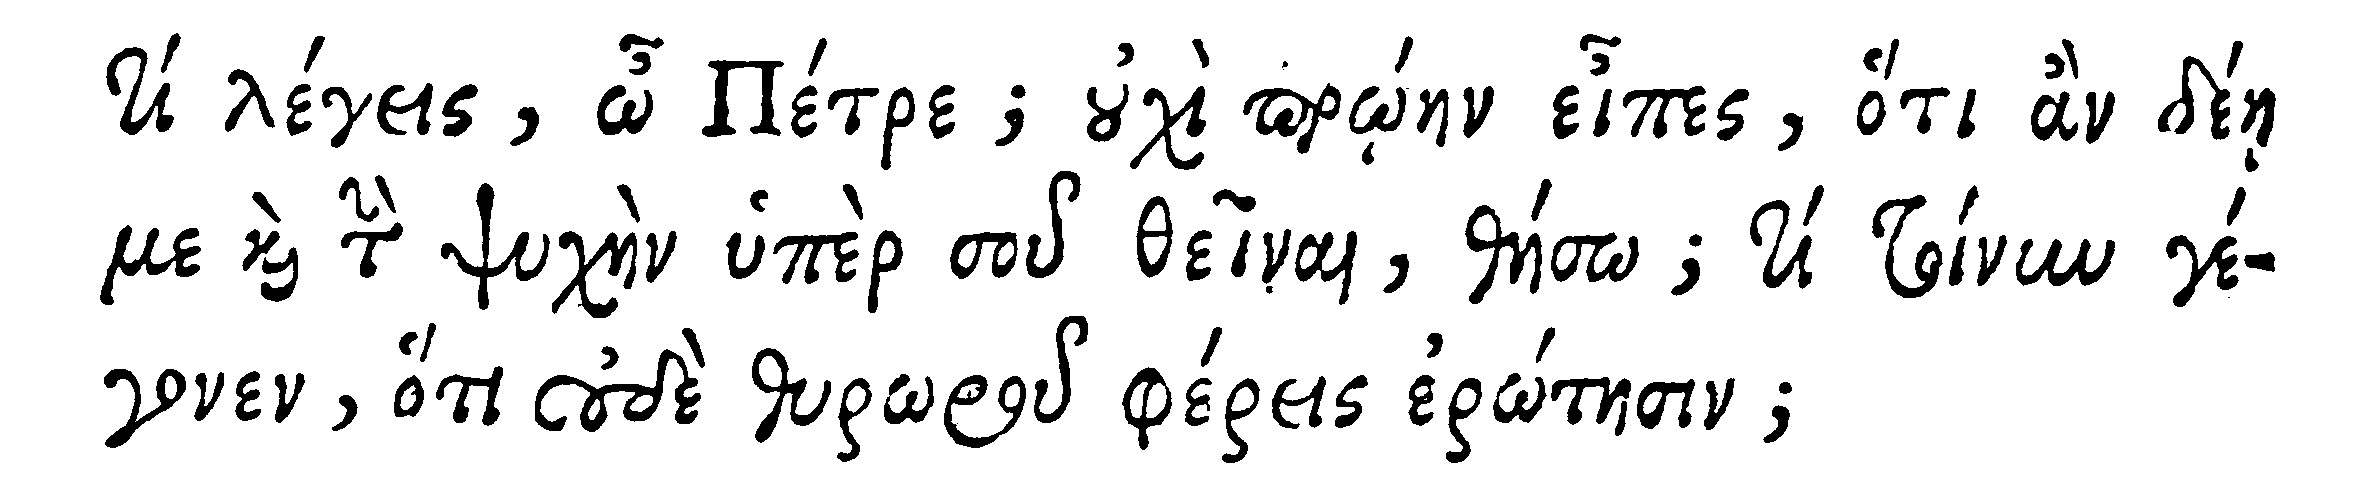 Τί λέγεις, ὦ Πέτρε; οὐχὶ πρῴην εἶπες, ὅτι ἂν δέῃ
με καὶ τὴν ψυχὴν ὑπὲρ σοῦ θεῖναι, θήσω; Τί τοίνυν γέ-
γονεν, ὅτι οὐδὲ θυρωροῦ φέρεις ἐρώτησιν;